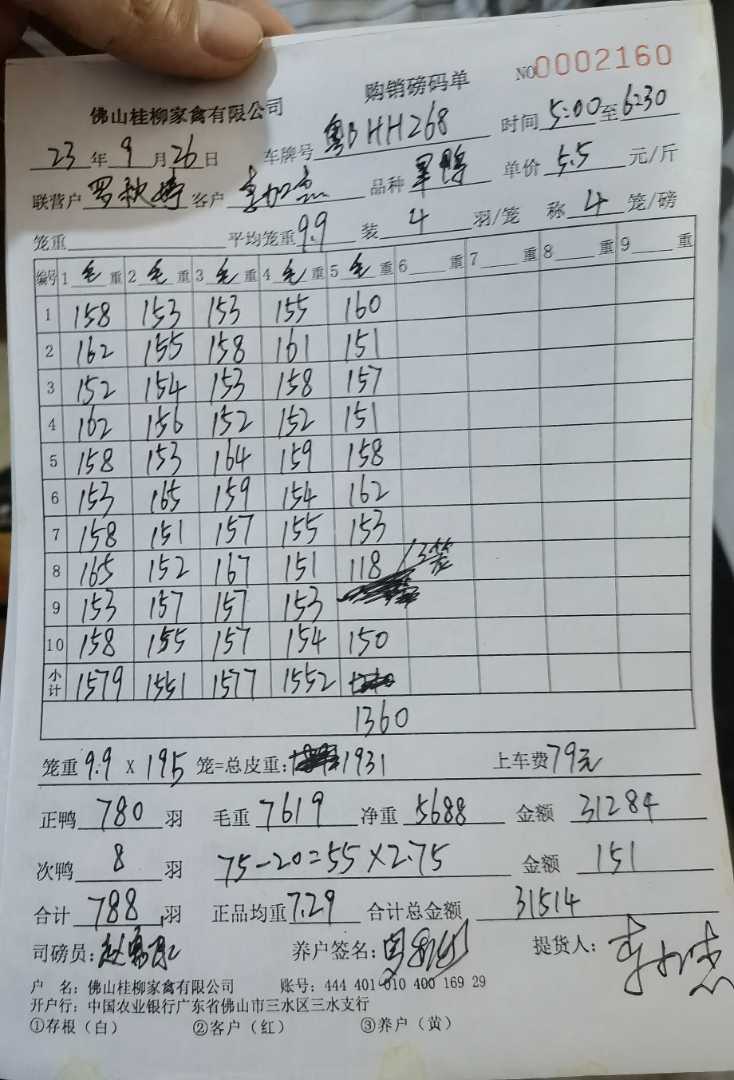 购销磅码单 NO0002160
佛山桂柳家禽有限公司
23年9月26日 车牌号 粤BHH268 时间5:00至6:30
联营户 罗秋婷 客户 李加杰 品种 单价5.5元/斤
笼重 平均笼重9.9 装4羽/笼 称4笼/磅
编号 1毛重 2毛重 3毛重 4毛重 5毛重 6重 7重 8重 9重
1 158 153 153 155 160
2 162 155 158 161 151
3 152 154 153 158 157
4 162 156 152 152 151
5 158 153 164 159 158
6 153 165 159 154 162
7 158 151 157 155 153
8 165 152 167 151 118/3笼
9 153 157 157 153
10 158 155 157 154 150
小计 1579 1551 1577 1552
1360
笼重9.9X195笼=总皮重:1931 上车费79元
正鸭780羽 毛重7619 净重5688 金额31284
次鸭8羽 75-20=55×2.75 金额151
合计788羽 正品均重7.29 合计总金额31514
司磅员: 养户签名: 提货人:李加杰
户 名:佛山桂柳家禽有限公司 账号:444 401 010 400 169 29
开户行:中国农业银行广东省佛山市三水区三水支行
①存根(白) ②客户(红) ③养户(黄)